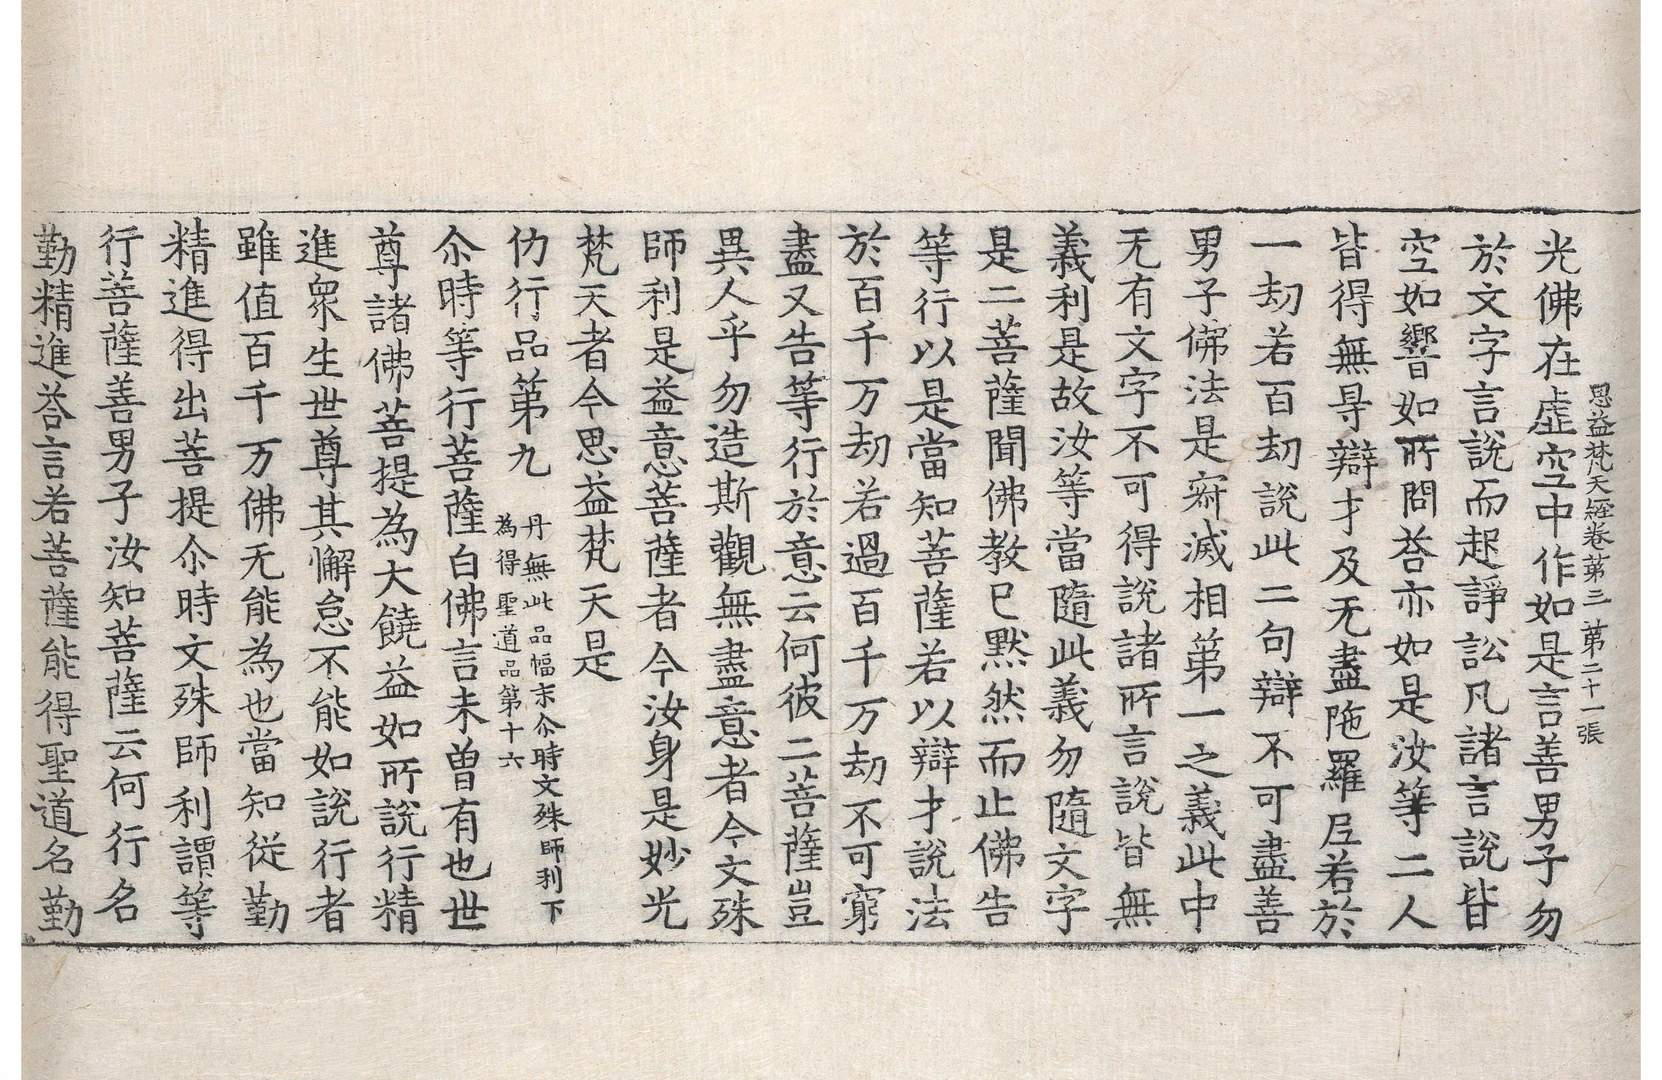 思益梵天經卷第三　第二十一張
光佛在虛空中作如是言善男子勿
於文字言說而起諍訟凡諸言說皆
空如響如所問荅亦如是汝等二人
皆得無㝵辯才及无盡陁羅尼若於
一劫若百劫說此二句辯不可盡善
男子佛法是㝷滅相第一之義此中
无有文字不可得說諸所言說皆無
義利是故汝等當隨此義勿隨文字
是二菩薩聞佛教已默然而止佛告
等行以是當知菩薩若以辯才說法
於百千万劫若過百千万劫不可窮
盡又告等行於意云何彼二菩薩豈
異人乎勿造斯觀無盡意者今文殊
師利是益意菩薩者今汝身是妙光
梵天者今思益梵天是
仂行品第九
丹無此品幅末尒時文殊師利下
為得聖道品第十六
尒時等行菩薩白佛言未曾有也世
尊諸佛菩提為大饒益如所說行精
進衆生世尊其懈怠不能如說行者
雖值百千万佛无能為也當知從勤
精進得出菩提尒時文殊師利謂等
行菩薩善男子汝知菩薩云何行名
勤精進荅言若菩薩能得聖道名勤